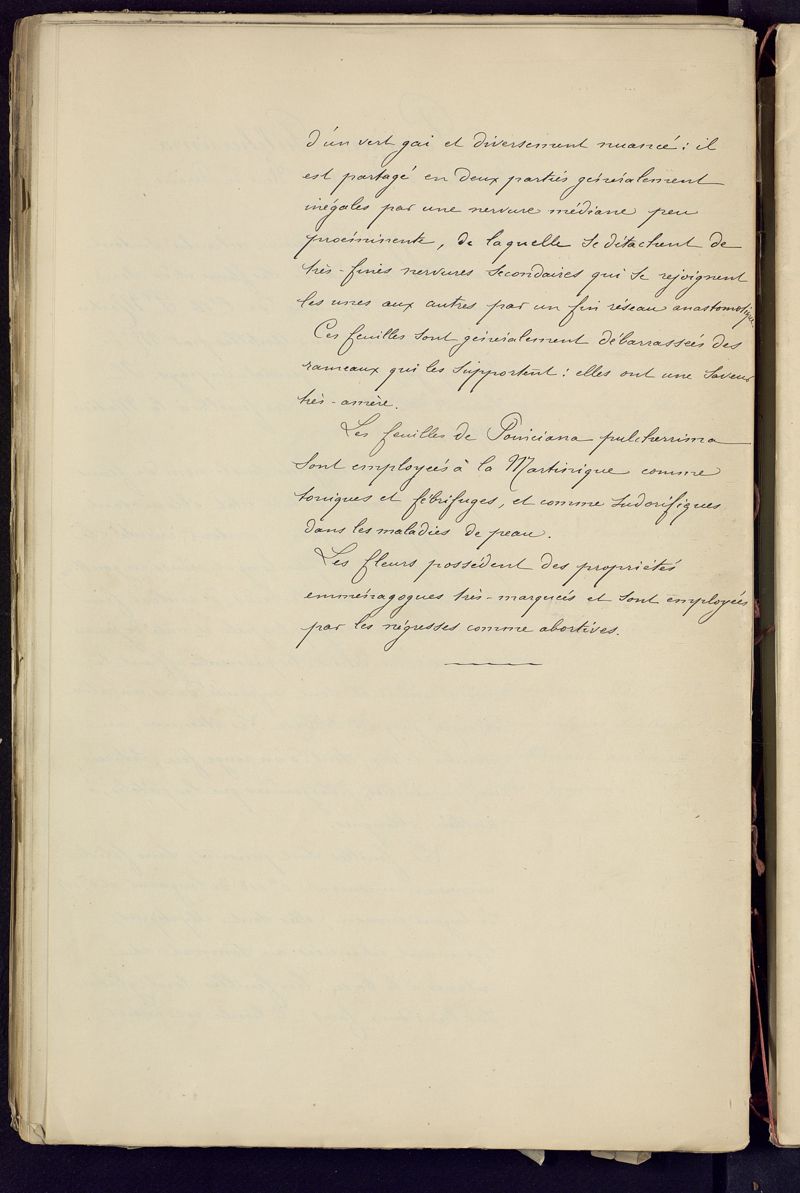 d'un vert gai et diversement nuancé : il
est partagé en deux parties généralement
inégales par une nervure médiane peu
proéminente, de laquelle se détachent de
très-fines nervures secondaires qui se rejoignent
les unes aux autres par un fin réseau anastomotique.
Ces feuilles sont généralement débarrassées des
rameaux qui les supportent : elles ont une saveur
très-amère.
Les feuilles de Poinciana pulcherrima
sont employées à la Martinique comme
toniques et fébrifuges, et comme sudorifiques
dans les maladies de peau.
Les fleurs possèdent des propriétés
emménagogues très-marquées et sont employées
par les négresses comme abortives.